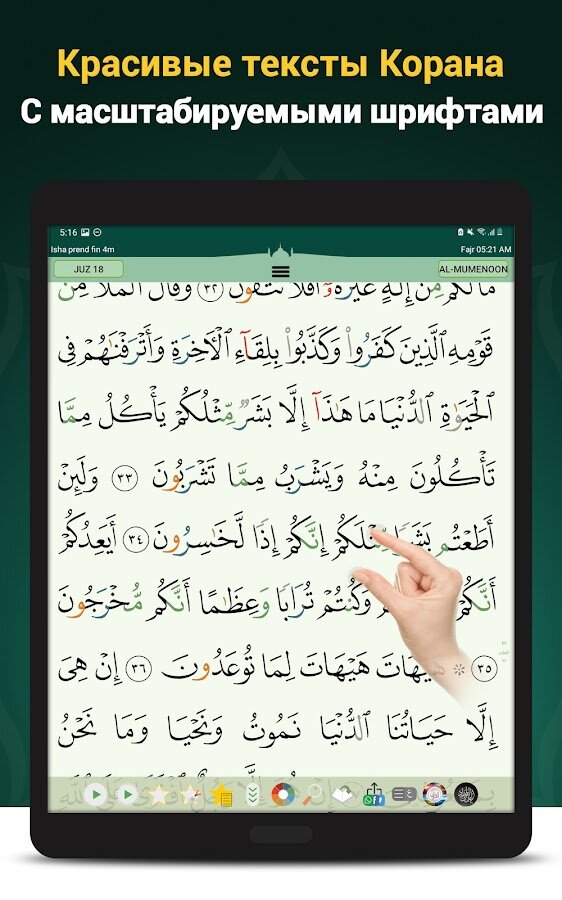 Красивые тексты Корана
С масштабируемыми шрифтами
5:16
Isha prend fin 4m
Fajr 05:21 AM
JUZ 18
AL-MUMENOON
مَا لَكُم مِّنْ إِلَٰهٍ غَيْرُهُۥٓ أَفَلَا تَتَّقُونَ ٣٢ وَقَالَ ٱلْمَلَأُ مِن
قَوْمِهِ ٱلَّذِينَ كَفَرُوا۟ وَكَذَّبُوا۟ بِلِقَآءِ ٱلْأَخِرَةِ وَأَتْرَفْنَٰهُمْ فِى
ٱلْحَيَوٰةِ ٱلدُّنْيَا مَا هَٰذَآ إِلَّا بَشَرٌ مِّثْلُكُمْ يَأْكُلُ مِمَّا
تَأْكُلُونَ مِنْهُ وَيَشْرَبُ مِمَّا تَشْرَبُونَ ٣٣ وَلَئِنْ
أَطَعْتُم بَشَرًا مِّثْلَكُمْ إِنَّكُمْ إِذًا لَّخَٰسِرُونَ ٣٤ أَيَعِدُكُمْ
أَنَّكُمْ وَكُنتُمْ تُرَابًا وَعِظَٰمًا أَنَّكُم مُّخْرَجُونَ
٣٥ ۞ هَيْهَاتَ هَيْهَاتَ لِمَا تُوعَدُونَ ٣٦ إِنْ هِىَ
إِلَّا حَيَاتُنَا ٱلدُّنْيَا نَمُوتُ وَنَحْيَا وَمَا نَحْنُ